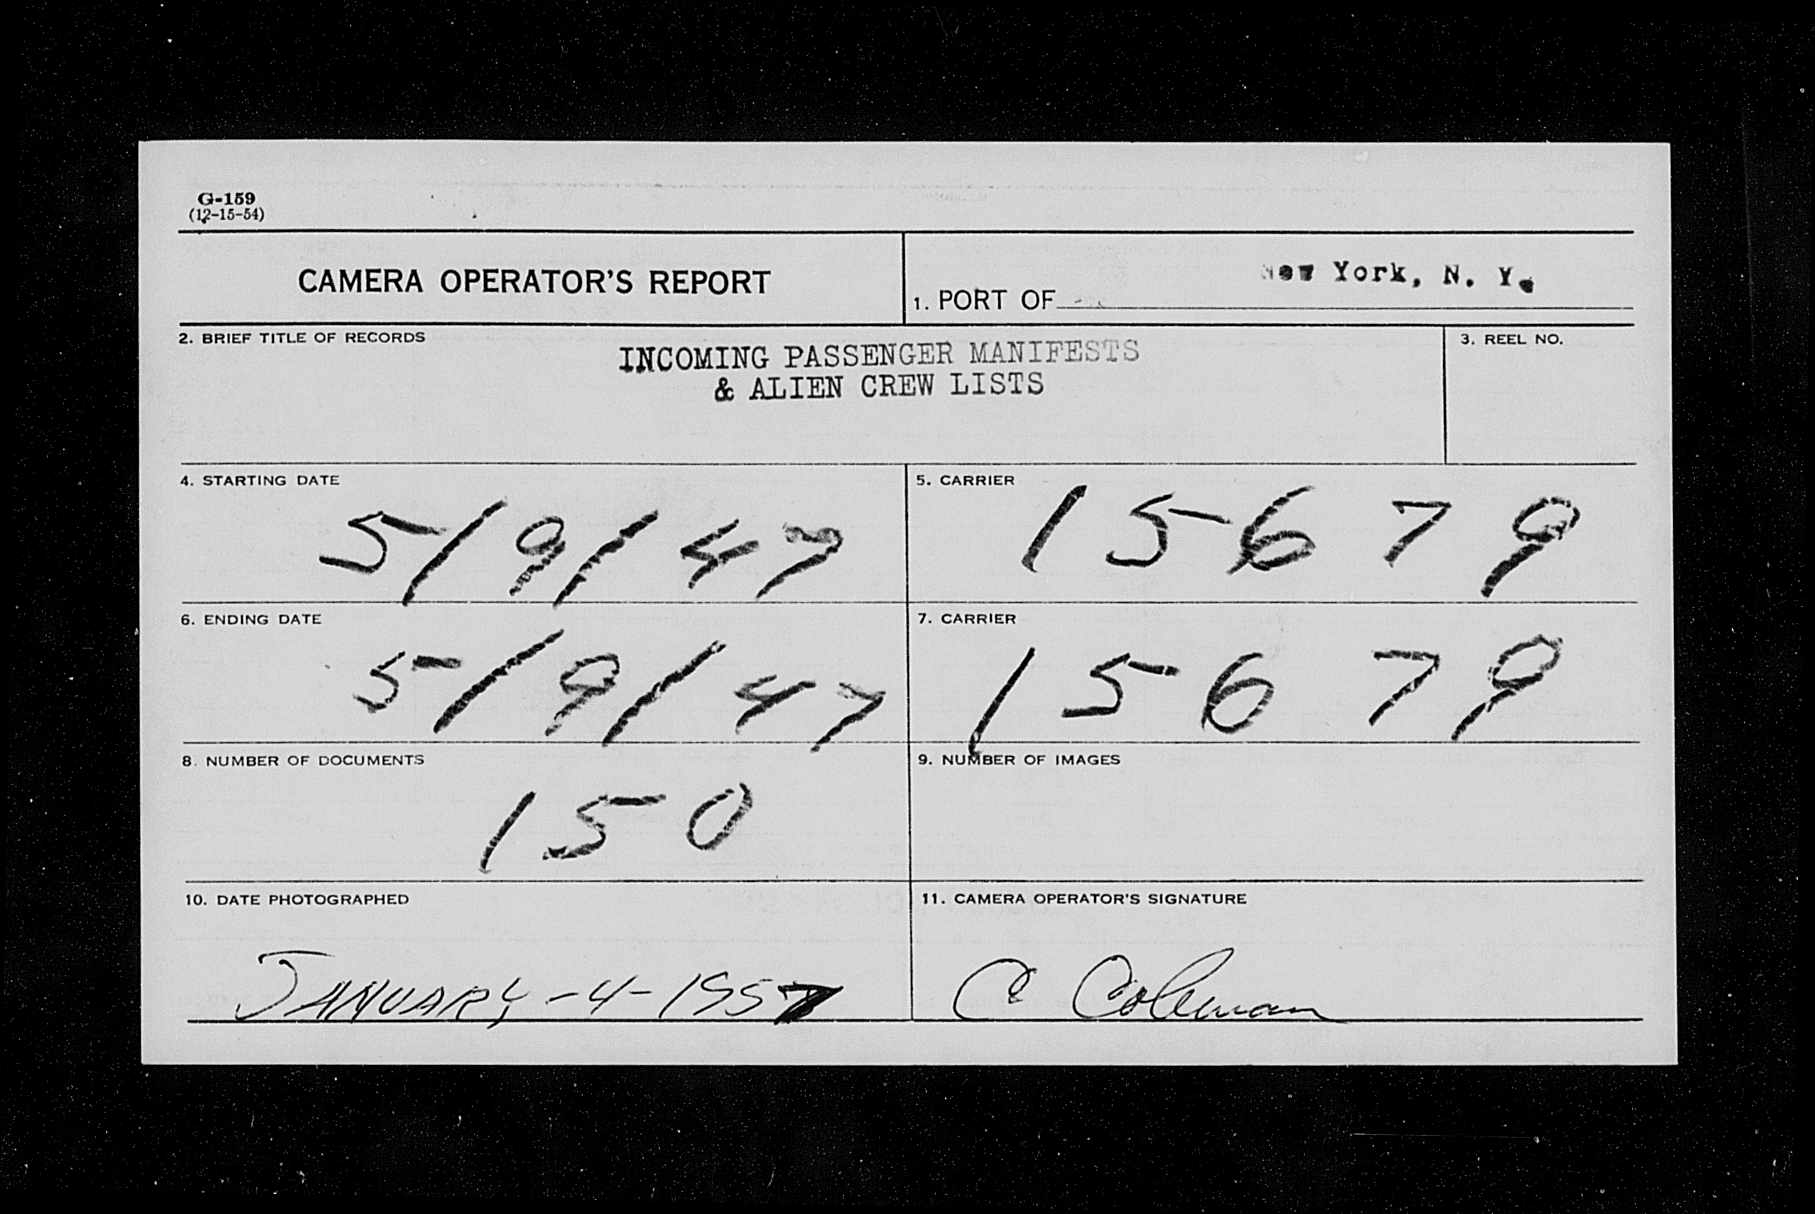 G-159
(12-15-54)
CAMERA OPERATOR'S REPORT
1. PORT OF New York, N. Y.
2. BRIEF TITLE OF RECORDS
INCOMING PASSENGER MANIFESTS
& ALIEN CREW LISTS
3. REEL NO.
4. STARTING DATE
5/9/47
5. CARRIER
15679
6. ENDING DATE
5/9/47
7. CARRIER
15679
8. NUMBER OF DOCUMENTS
150
9. NUMBER OF IMAGES
10. DATE PHOTOGRAPHED
JANUARY-4-1957
11. CAMERA OPERATOR'S SIGNATURE
C Coleman